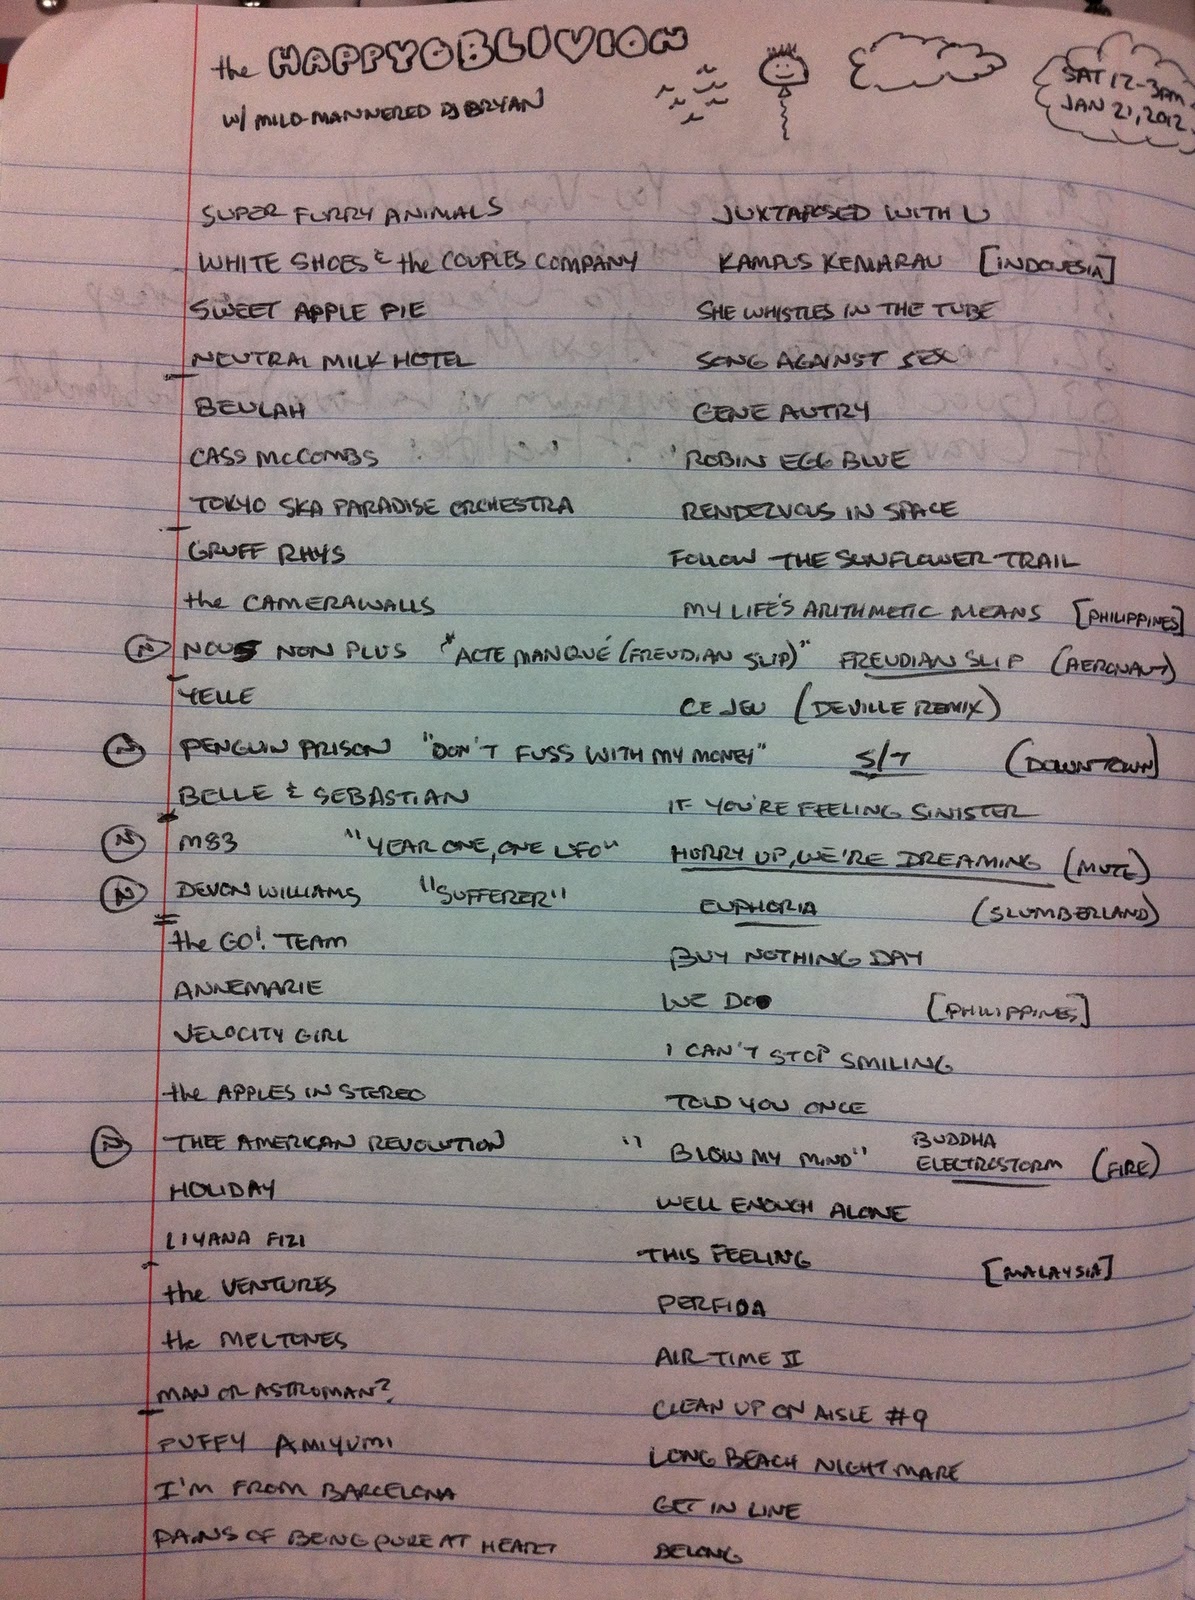 the HAPPYOBLIVION
W/ MILD-MANNERED DJ BRYAN
SAT 12-3AM
JAN 21, 2012
SUPER FURRY ANIMALS JUXTAPOSED WITH U
WHITE SHOES & the COUPLES COMPANY KAMPUS KEMARAU [INDONESIA]
SWEET APPLE PIE SHE WHISTLES IN THE TUBE
NEUTRAL MILK HOTEL SONG AGAINST SEX
BEULAH GENE AUTRY
CASS MCCOMBS ROBIN EGG BLUE
TOKYO SKA PARADISE ORCHESTRA RENDEZVOUS IN SPACE
GRUFF RHYS FOLLOW THE SUNFLOWER TRAIL
the CAMERAWALLS MY LIFE'S ARITHMETIC MEANS [PHILIPPINES]
N NOUS NON PLUS "ACTE MANQUÉ (FREUDIAN SLIP)" FREUDIAN SLIP (AERONAUT)
YELLE CE JEU (DEVILLE REMIX)
N PENGUIN PRISON "DON'T FUSS WITH MY MONEY" S/T (DOWNTOWN]
BELLE & SEBASTIAN IF YOU'RE FEELING SINISTER
N M83 "YEAR ONE, ONE UFO" HURRY UP, WE'RE DREAMING (MUTE)
N DEVON WILLIAMS "SUFFERER" EUPHORIA (SLUMBERLAND)
the GO! TEAM BUY NOTHING DAY
ANNEMARIE WE DO [PHILIPPINES]
VELOCITY GIRL I CAN'T STOP SMILING
the APPLES IN STEREO TOLD YOU ONCE
N THEE AMERICAN REVOLUTION "BLOW MY MIND" BUDDHA ELECTROSTORM (FIRE)
HOLIDAY WELL ENOUGH ALONE
LIYANA FIZI THIS FEELING [MALAYSIA]
the VENTURES PERFIDA
the MELTONES AIR TIME II
MAN OR ASTROMAN? CLEAN UP ON AISLE #9
PUFFY AMIYUMI LONG BEACH NIGHTMARE
I'M FROM BARCELONA GET IN LINE
PAINS OF BEING PURE AT HEART BELONG